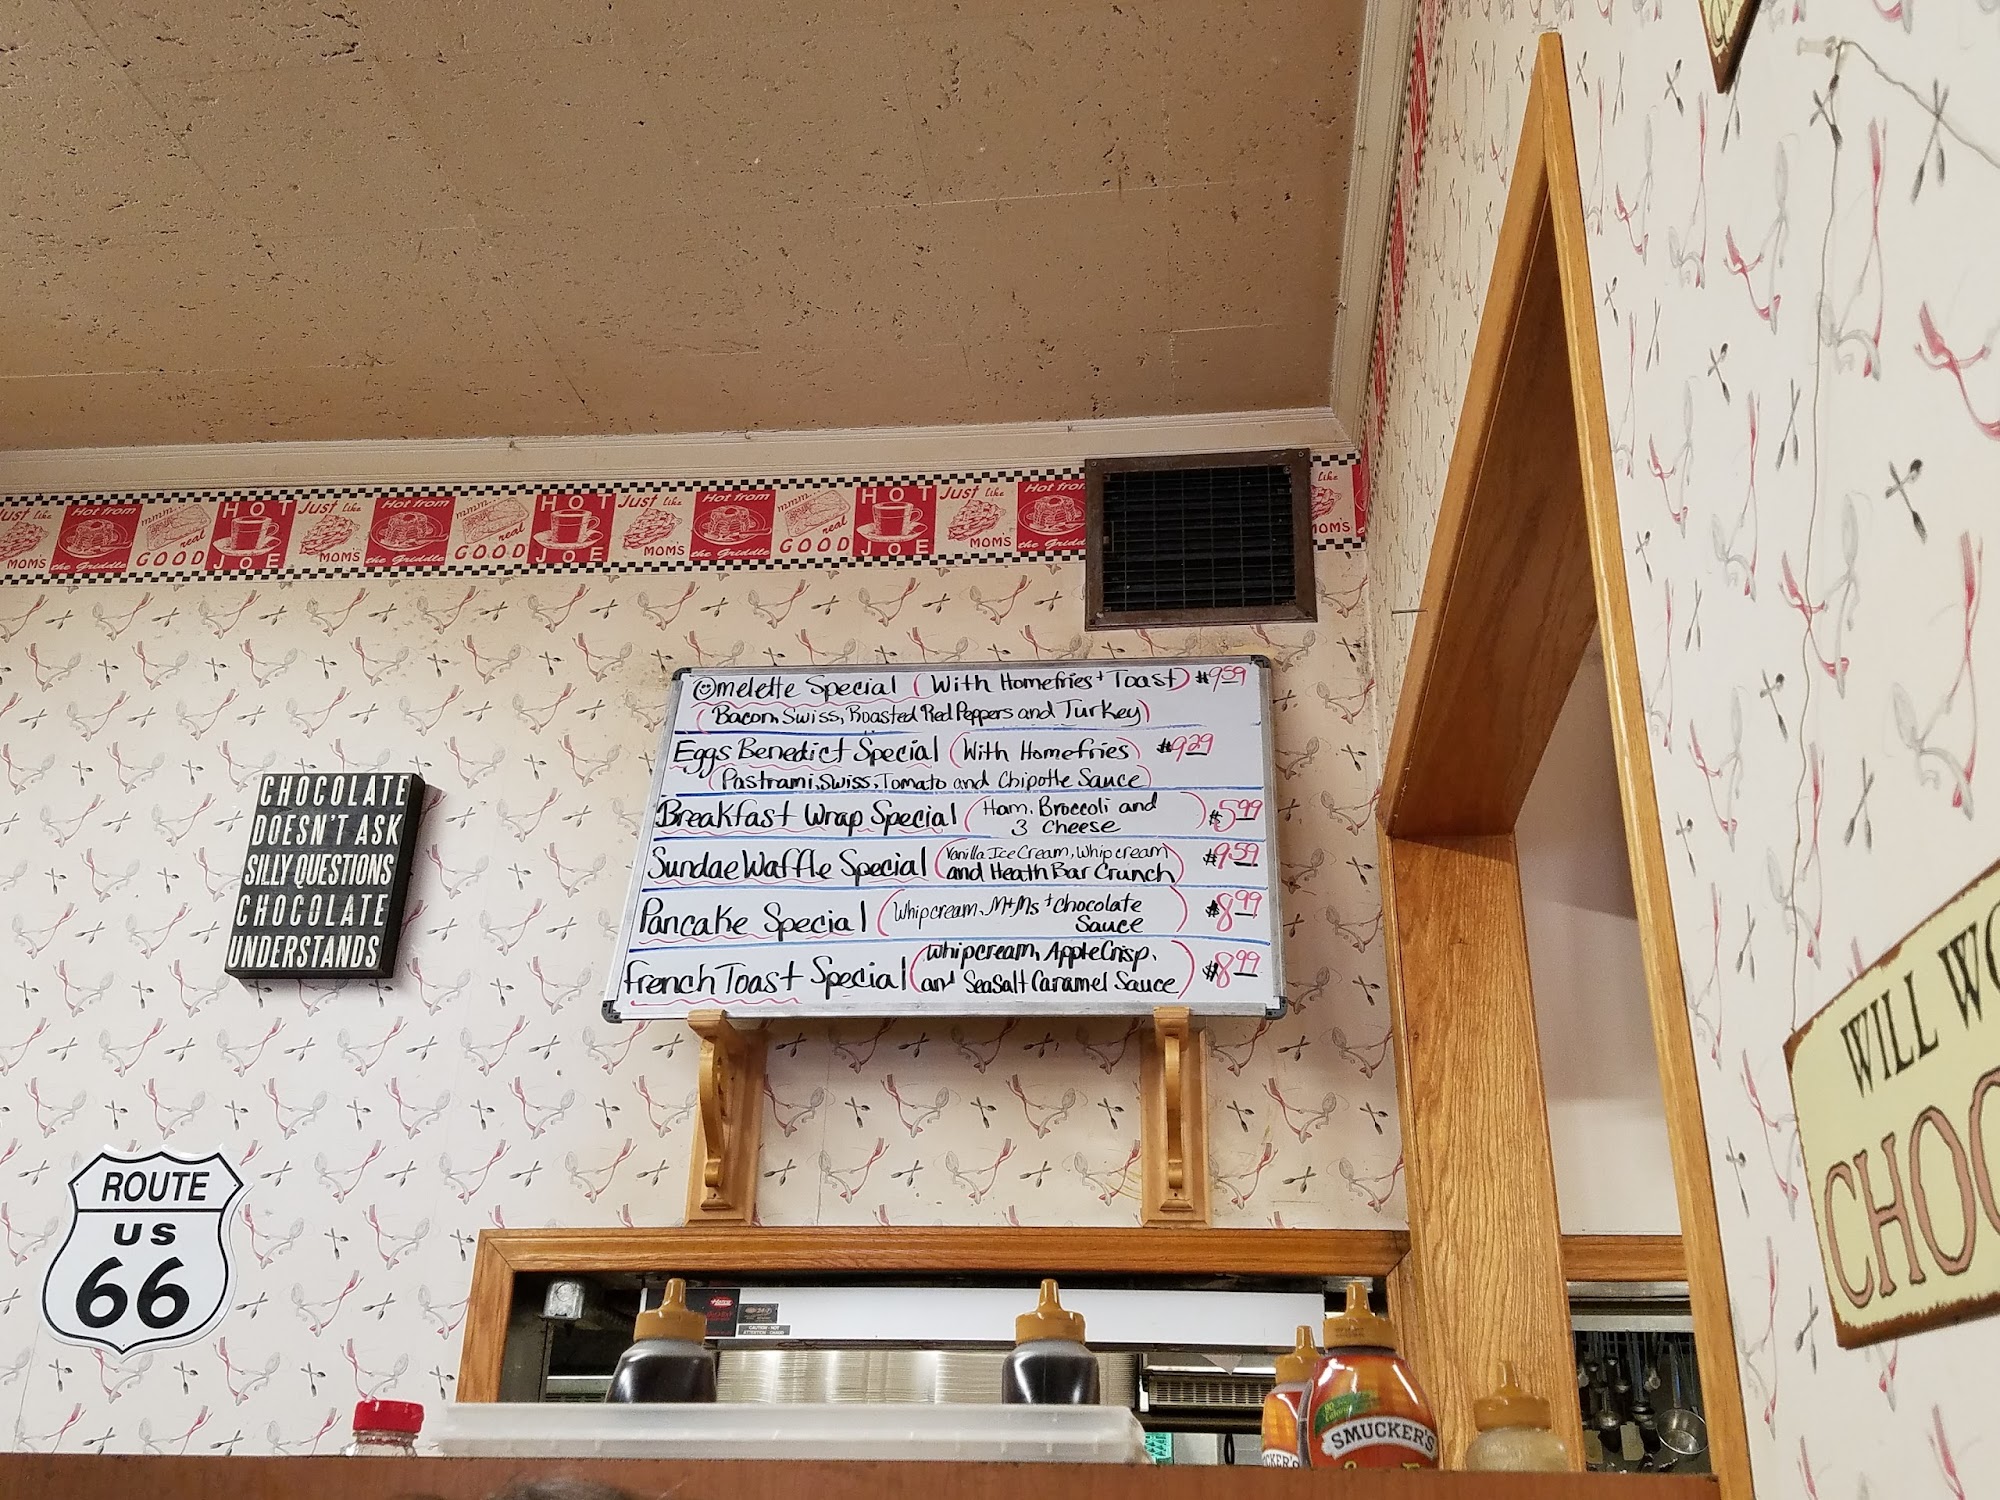 Just like
MOM'S
Hot from
the Griddle
mmm... real
GOOD
HOT
JOE
Just like
MOM'S
Hot from
the Griddle
mmm... real
GOOD
HOT
JOE
Just like
MOM'S
Hot from
the Griddle
mmm... real
GOOD
HOT
JOE
Just like
MOM'S
Hot from
the Griddle
like
MOM'S
Omelette Special (With Homefries + Toast) $9.59
(Bacon, Swiss, Roasted Red Peppers and Turkey)
Eggs Benedict Special (With Homefries) $9.29
(Pastrami, Swiss, Tomato and Chipotle Sauce)
Breakfast Wrap Special (Ham, Broccoli and
3 Cheese) $5.99
Sundae Waffle Special (Vanilla Ice Cream, Whip cream
and Heath Bar Crunch) $9.59
Pancake Special (Whipcream, M+Ms + chocolate
Sauce) $8.99
French Toast Special (Whipcream, Apple Crisp,
and SeaSalt Caramel Sauce) $8.99
CHOCOLATE
DOESN'T ASK
SILLY QUESTIONS
CHOCOLATE
UNDERSTANDS
ROUTE
US
66
WILL WO
CHOC
CAUTION - HOT
SMUCKER'S
CKER'S